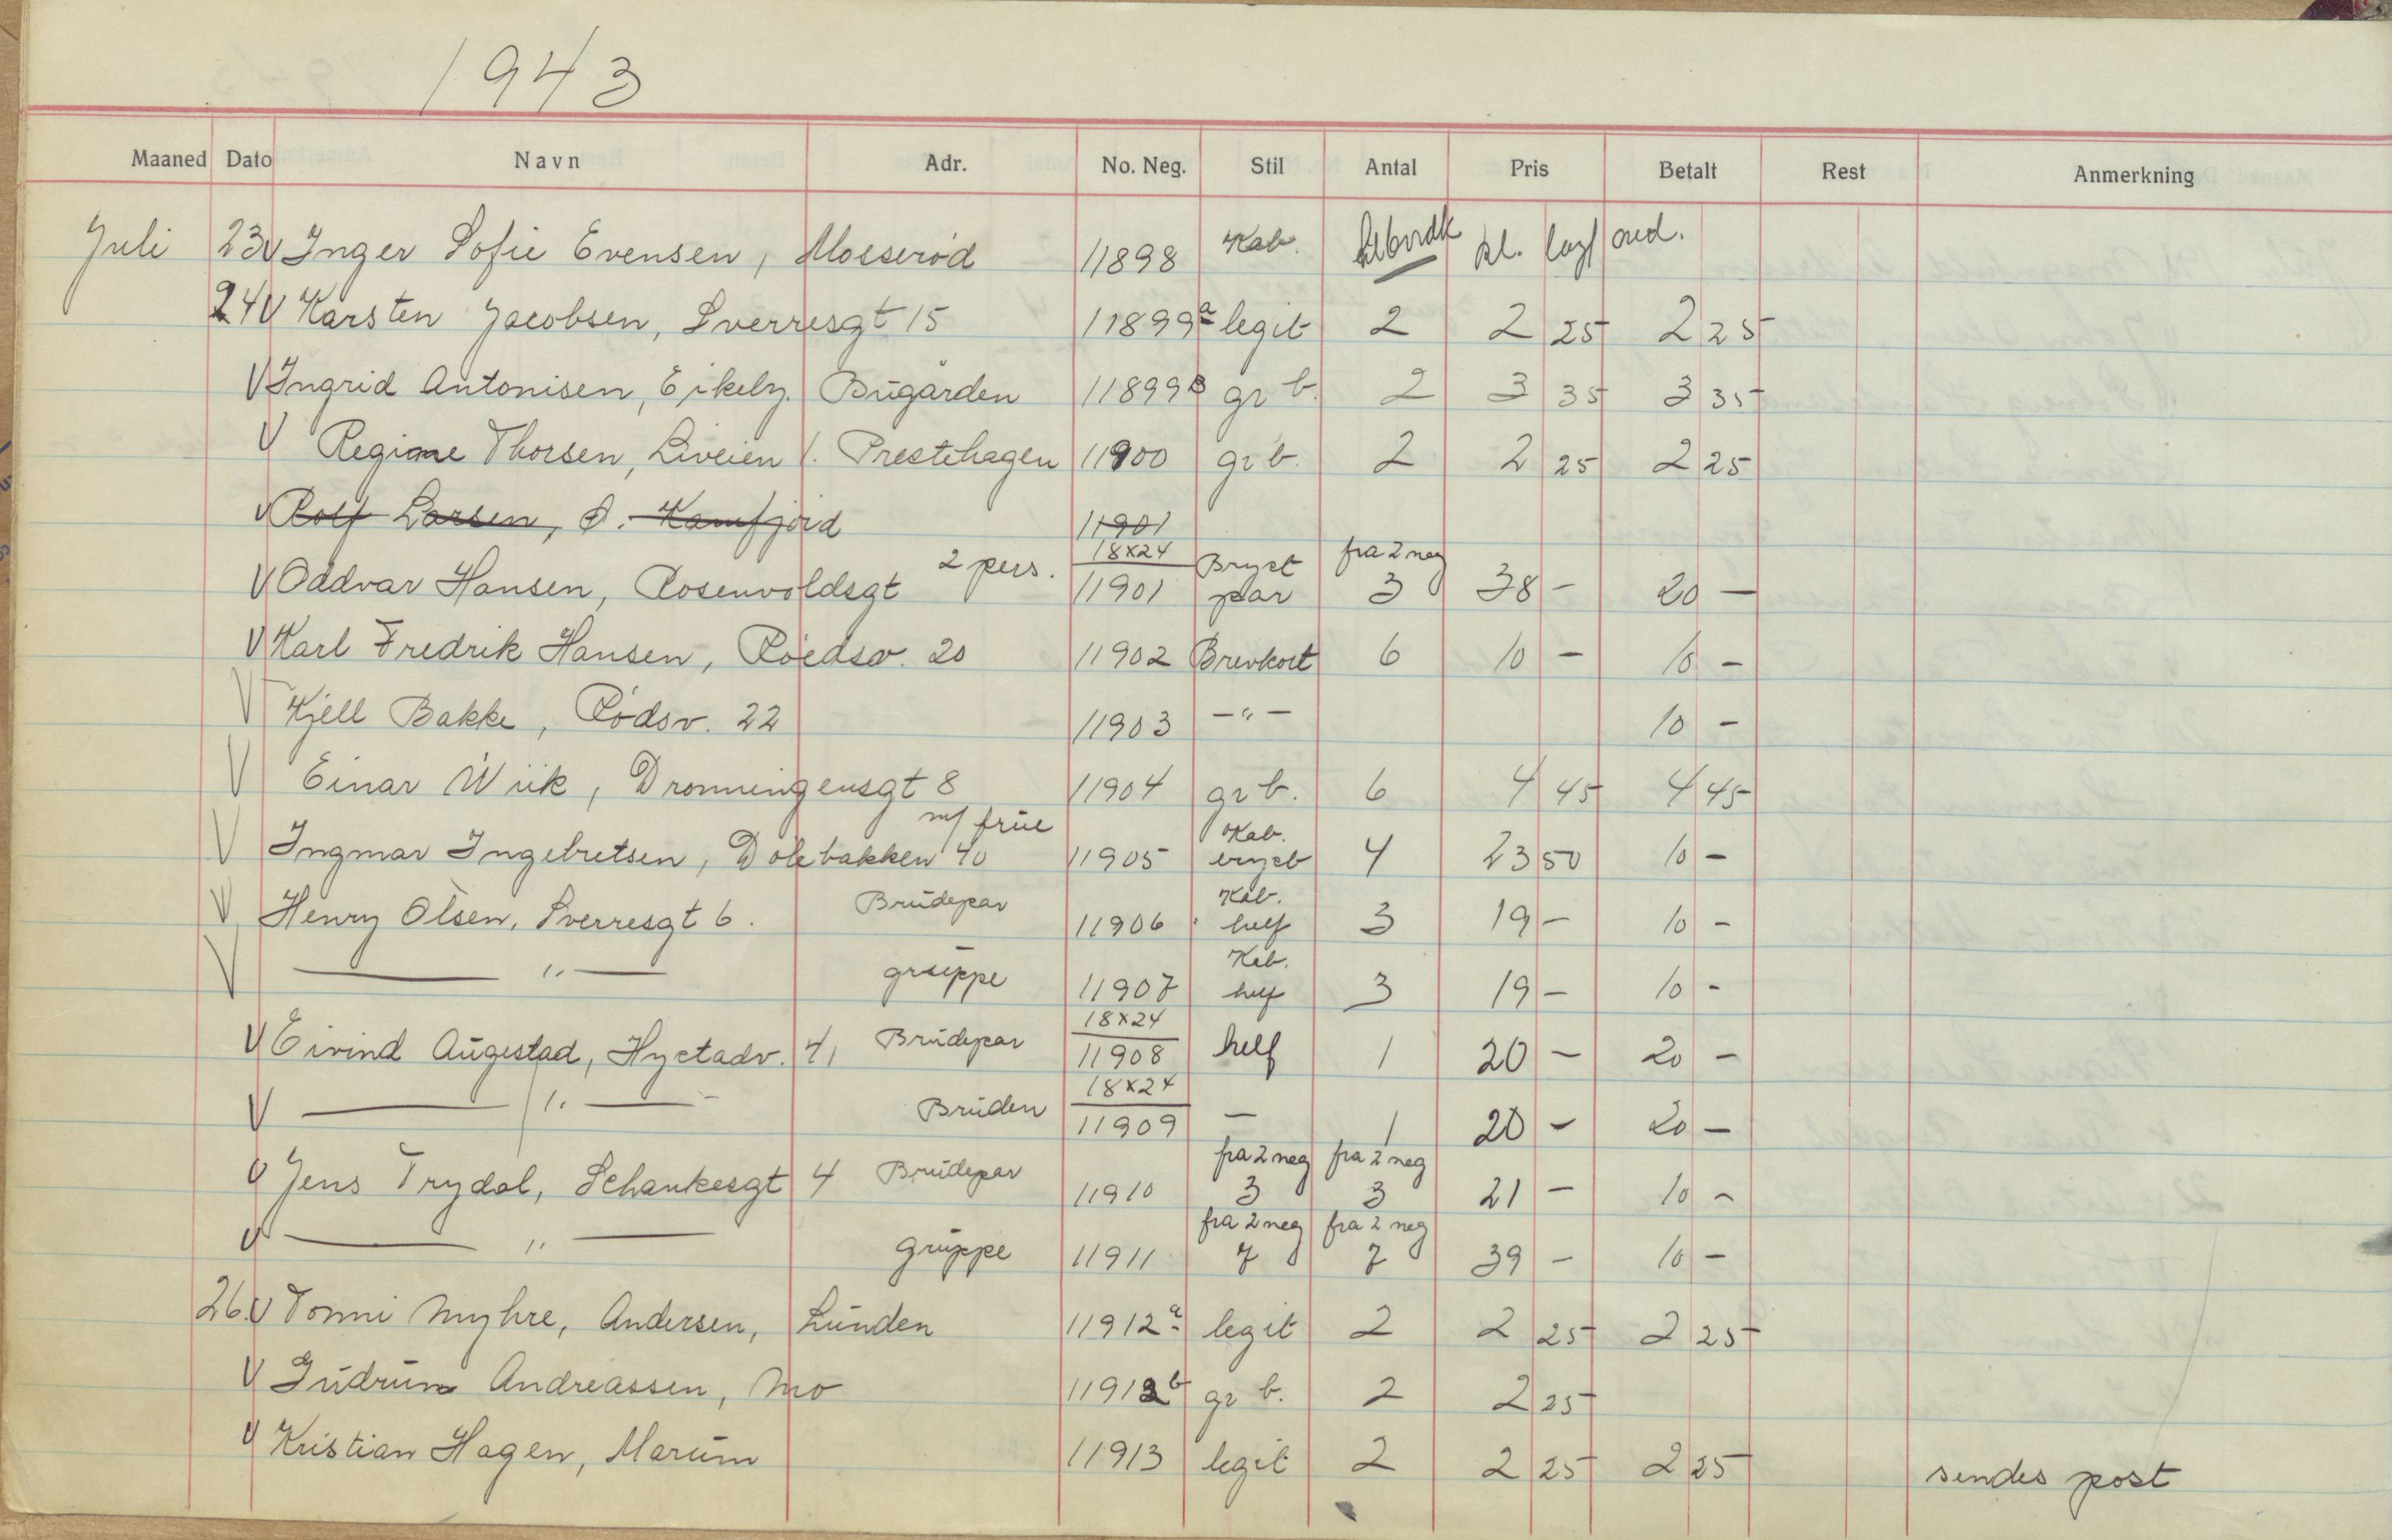 1943
Maaned Dato Navn Adr. No. Neg. Stil Antal Pris Betalt Rest Anmerkning
Juli 23 V Inger Sofie Evensen, Mosserød 11898 Kab. kl.
24 V Karsten Jacobsen, Sverresgt 15 11899a legit 2 2 25 2 25
V Ingrid Antonisen, Eikely. Bugården 11899B gr b. 2 3 35 3 35
V Regine Thorsen, Liveien 1. Prestehagen 11900 gr b. 2 2 25 2 25
V Rolf Larsen, Ø. Kamfjord 11901
V Oddvar Hansen, Rosenvoldsgt 2 pers. 18x24 11901 Bryst par fra 2 neg 3 38 - 20 -
V Karl Fredrik Hansen, Røedsv. 20 11902 Brevkort 6 10 - 10 -
V Kjell Bakke, Rødsv. 22 11903 -"- 10 -
V Einar Wiik, Dronningensgt 8 11904 gr b. 6 4 45 4 45
V Ingmar Ingebretsen, Dølebakken 40 m/ frue 11905 Kab. bryst 4 23 50 10 -
V Henry Olsen, Sverresgt 6. Brudepar 11906 Kab. helf 3 19 - 10 -
V — " — gruppe 11907 Kab. helf 3 19 - 10 -
V Eivind Augestad, Hystadv. 41 Brudepar 18x24 11908 helf 1 20 - 20 -
V — " — Bruden 18x24 11909 — 1 20 - 20 -
V Jens Trydal, Schankesgt 4 Brudepar 11910 fra 2 neg 3 fra 2 neg 3 21 - 10 -
V — " — gruppe 11911 fra 2 neg 7 fra 2 neg 7 39 - 10 -
26. V Tonni Myhre, Andersen, Lunden 11912a legit 2 2 25 2 25
V Gudrun Andreassen, Mo 11912b gr b. 2 2 25
V Kristian Hagen, Marum 11913 legit 2 2 25 2 25 sendes post